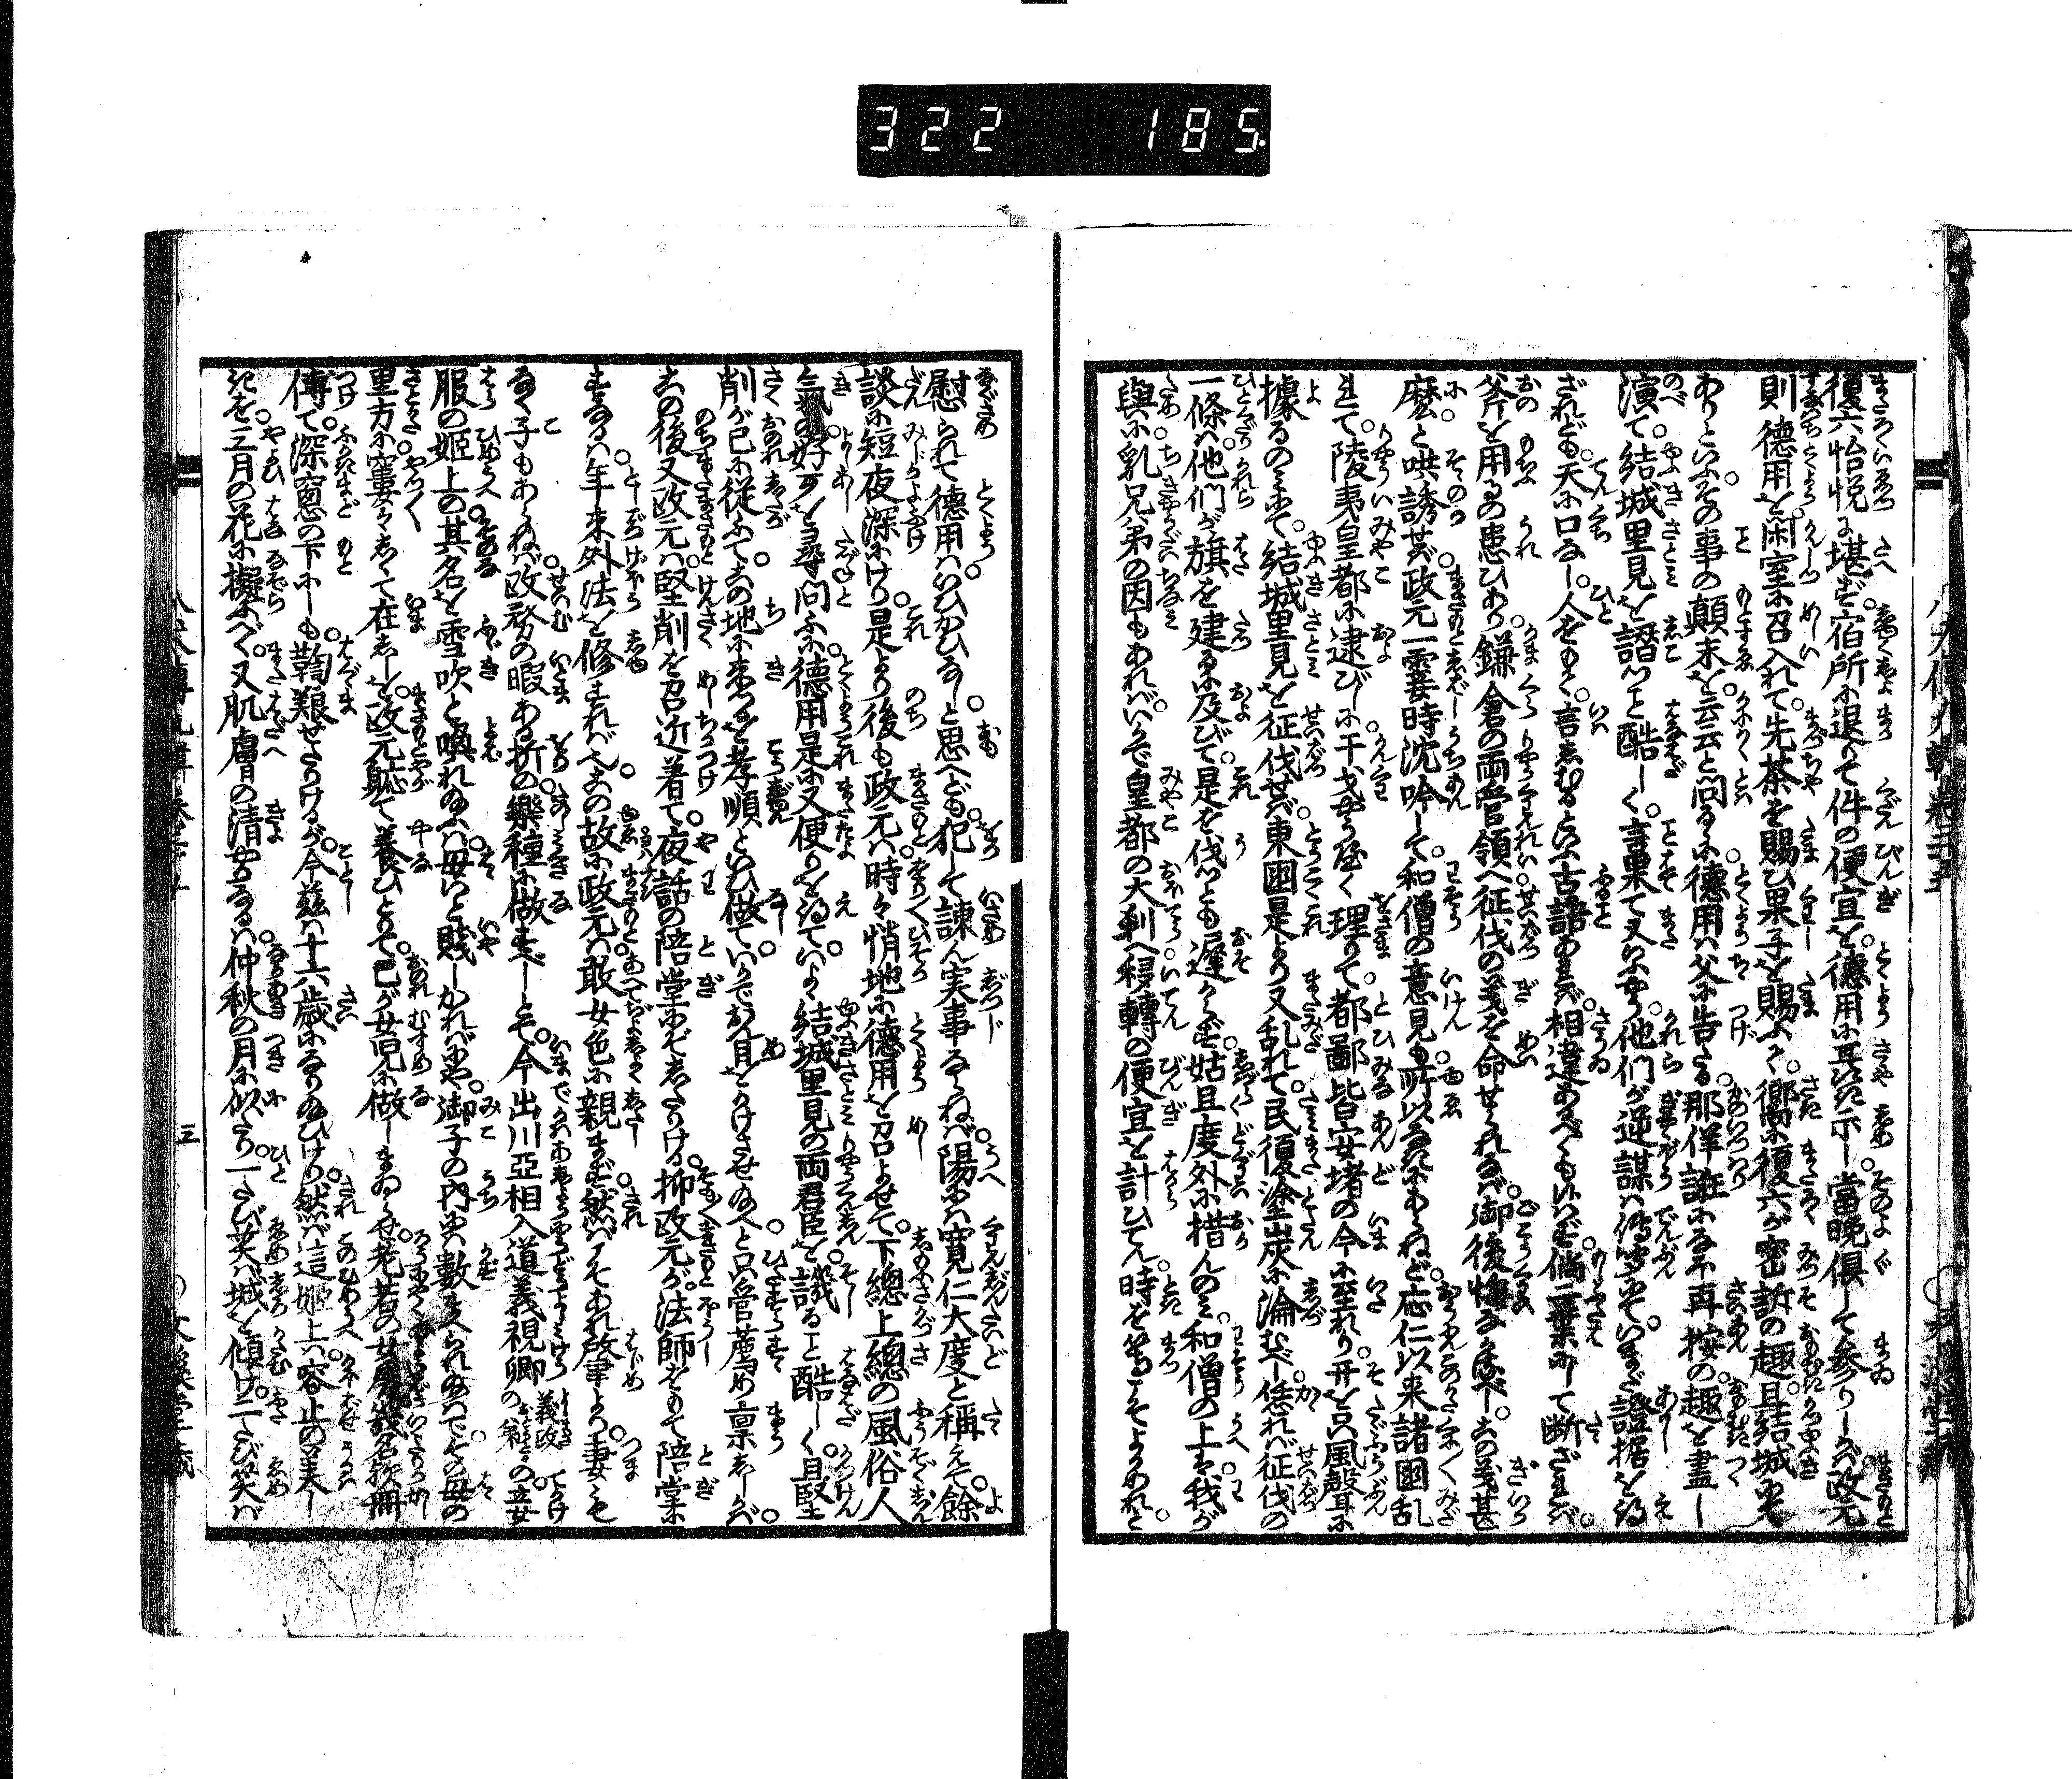 322 185
復六怡悦に堪ず宿所に退りて件の便宜を徳用に耳語示し當晩倶して参りしへ政元
則徳用を閑室に召入れて先茶を賜ひ果子を賜ふく郷に復六が密訴の趣且結城にて
ありといふその事の顛末を云云と問るゝに徳用は父に告たる那佯誑によりて再按の趣を盡し
演て結城里見を譖ること酷しく言果て又いふやう他們が逆謀は傳聞にていまだ證据を得
ざれども天に口なし人をもて言しむるといふ古語あれば相違あるべくもいはず倘二葉にして断ざれば
斧を用るの患ひあり鎌倉の両管領へ征伐の義を命せられずば御後悔あるべしこの義甚
麼と哄誘せば政元一霎時沈吟して和僧の意見も所以なきにあらねど応仁以来諸國乱
れて陵夷皇都に逮びしに干戈やうやく理りて都鄙皆安堵の今に至れり开を只風聲に
據るのみにて結城里見を征伐せば東國是より又乱れて民復塗炭に淪むべし恁れば征伐の
一條は他們が旗を建るに及びて是を伐つとも遅からず姑且度外に措んのみ和僧の上は我が
與に乳兄弟の因もあれば いかで皇都の大刹へ移轉の便宜を計ひてん時を等こそよかめれと
慰られて徳用はいひかひなしと思へども犯して諌ん実事ならねば陽には寛仁大度と稱えて餘
談に短夜深にけり是より後も政元は時々悄地に徳用を召よせて下總上總の風俗人
氣の好歹を尋問ふに徳用是に又便りを得ていよく結城里見の両君臣を譏ること酷しく且堅
削が己に從ふてこの地に来つるを孝順といひ做ていかでおん目をかけさせ給へと只管薦め稟ししかば
この後又政元は堅削を召近着て夜話の陪堂にぞしたりける抑政元が法師をもて陪堂に
するは年来外法を修すればへこの故に政元は敢女色に親まず然ばこそあれ啓聿より妻も
なく子もあらねば政務の暇ある折の樂種に做すべしとて今出川亞相入道義視卿の義政の弟の立女
服の姫上の其名を雪吹と喚れ給ふは母いと賤しかれば御子の内には數えられ給はでその母の
里方に窶々しくて在せしを政元恥て養ひとりて己が女児に做しまゐらせ老若の女房幾名欤冊
傅て深窓の下にしも鞠艱せさりけるが今茲は十六歳になり給ひけり然ば這姫上は容止の美し
きを三月の花に擬ふべく又肌膚の清やかなるは仲秋の月に似たり一たび笑へば城を傾け二たび笑へば
三